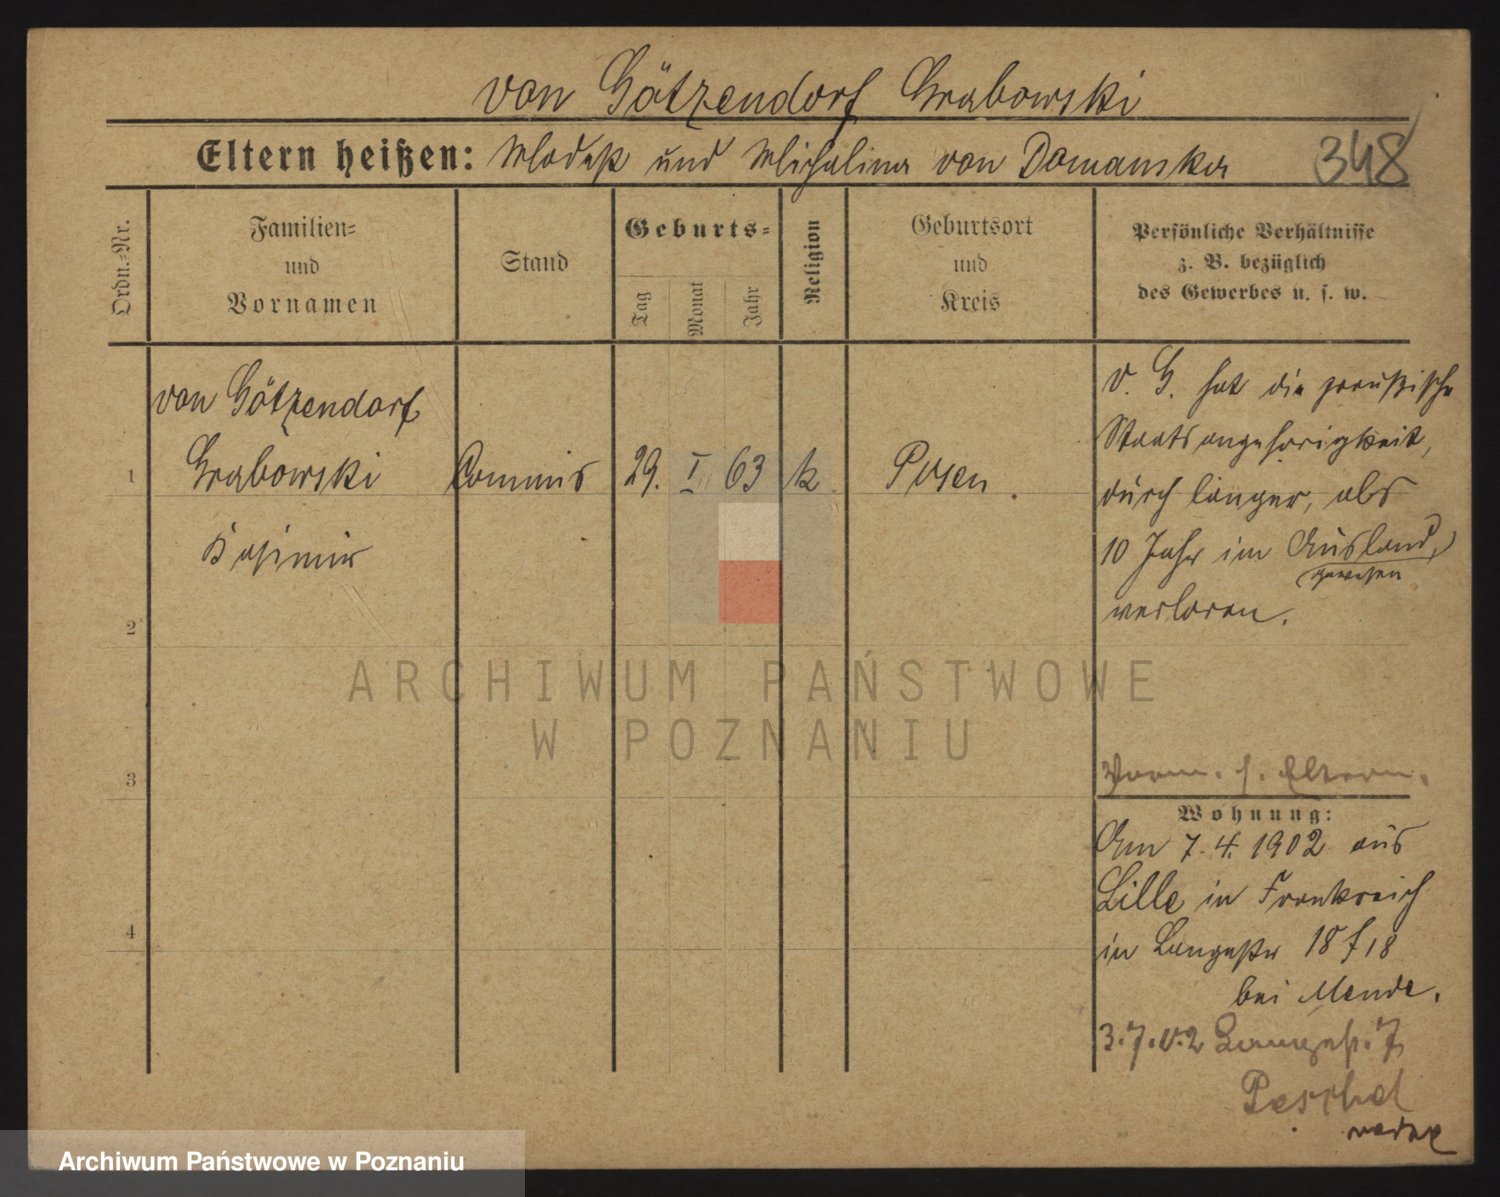 von Götzendorf Grabowski
Eltern heißen: und Michalina von Domanska
348
Ordn.-Nr.
Familien-
und
Vornamen
Stand
Geburts-
Tag
Monat
Jahr
Religion
Geburtsort
und
Kreis
Persönliche Verhältnisse
z. B. bezüglich
des Gewerbes u. s. w.
1
von Götzendorf
Grabowski
Kasimir
Commis
29. I 63
k
Posen.
v. G. hat die preußische
Staatsangehörigkeit,
durch länger, als
10 Jahr im Ausland,
gewesen
verloren.
2
3
4
Verm. s. Eltern.
Wohnung:
Am 7.4.1902 aus
Lille in Frankreich
in Langestr 18
bei Mende.
3.7.02 Langestr. 7
Peschel
ARCHIWUM PAŃSTWOWE
W POZNANIU
Archiwum Państwowe w Poznaniu